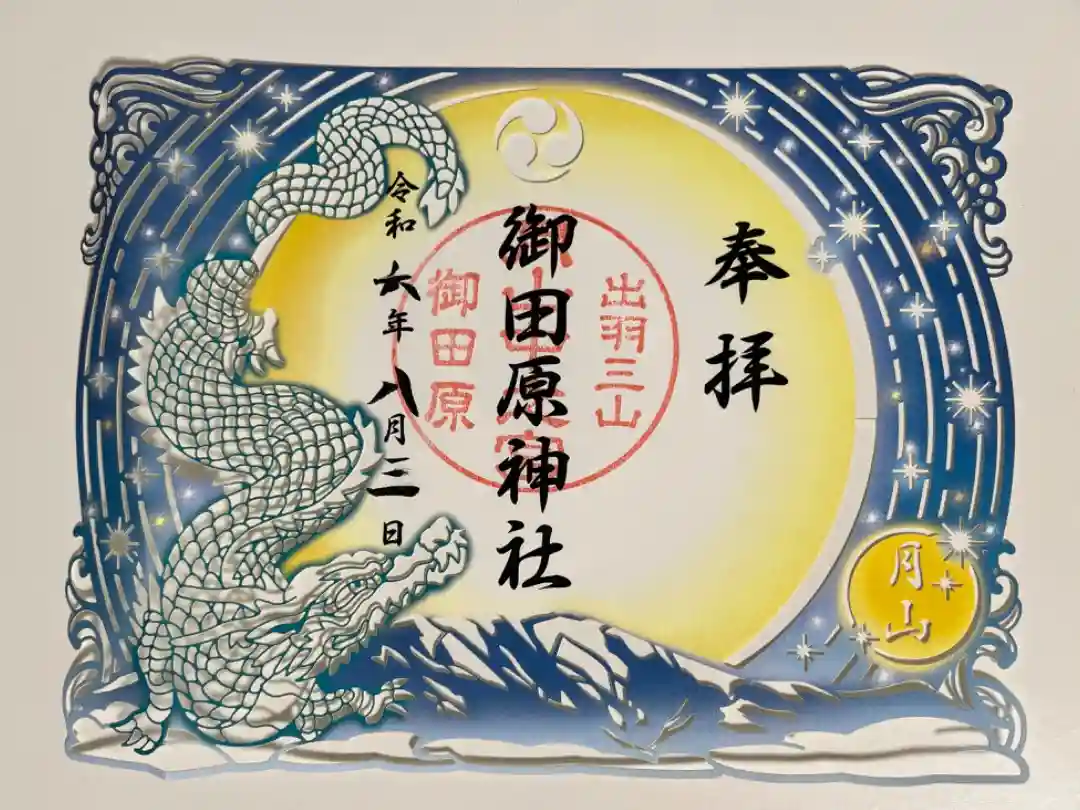 奉拝
出羽三山
御田原神社
御田原
令和六年八月三日
月山